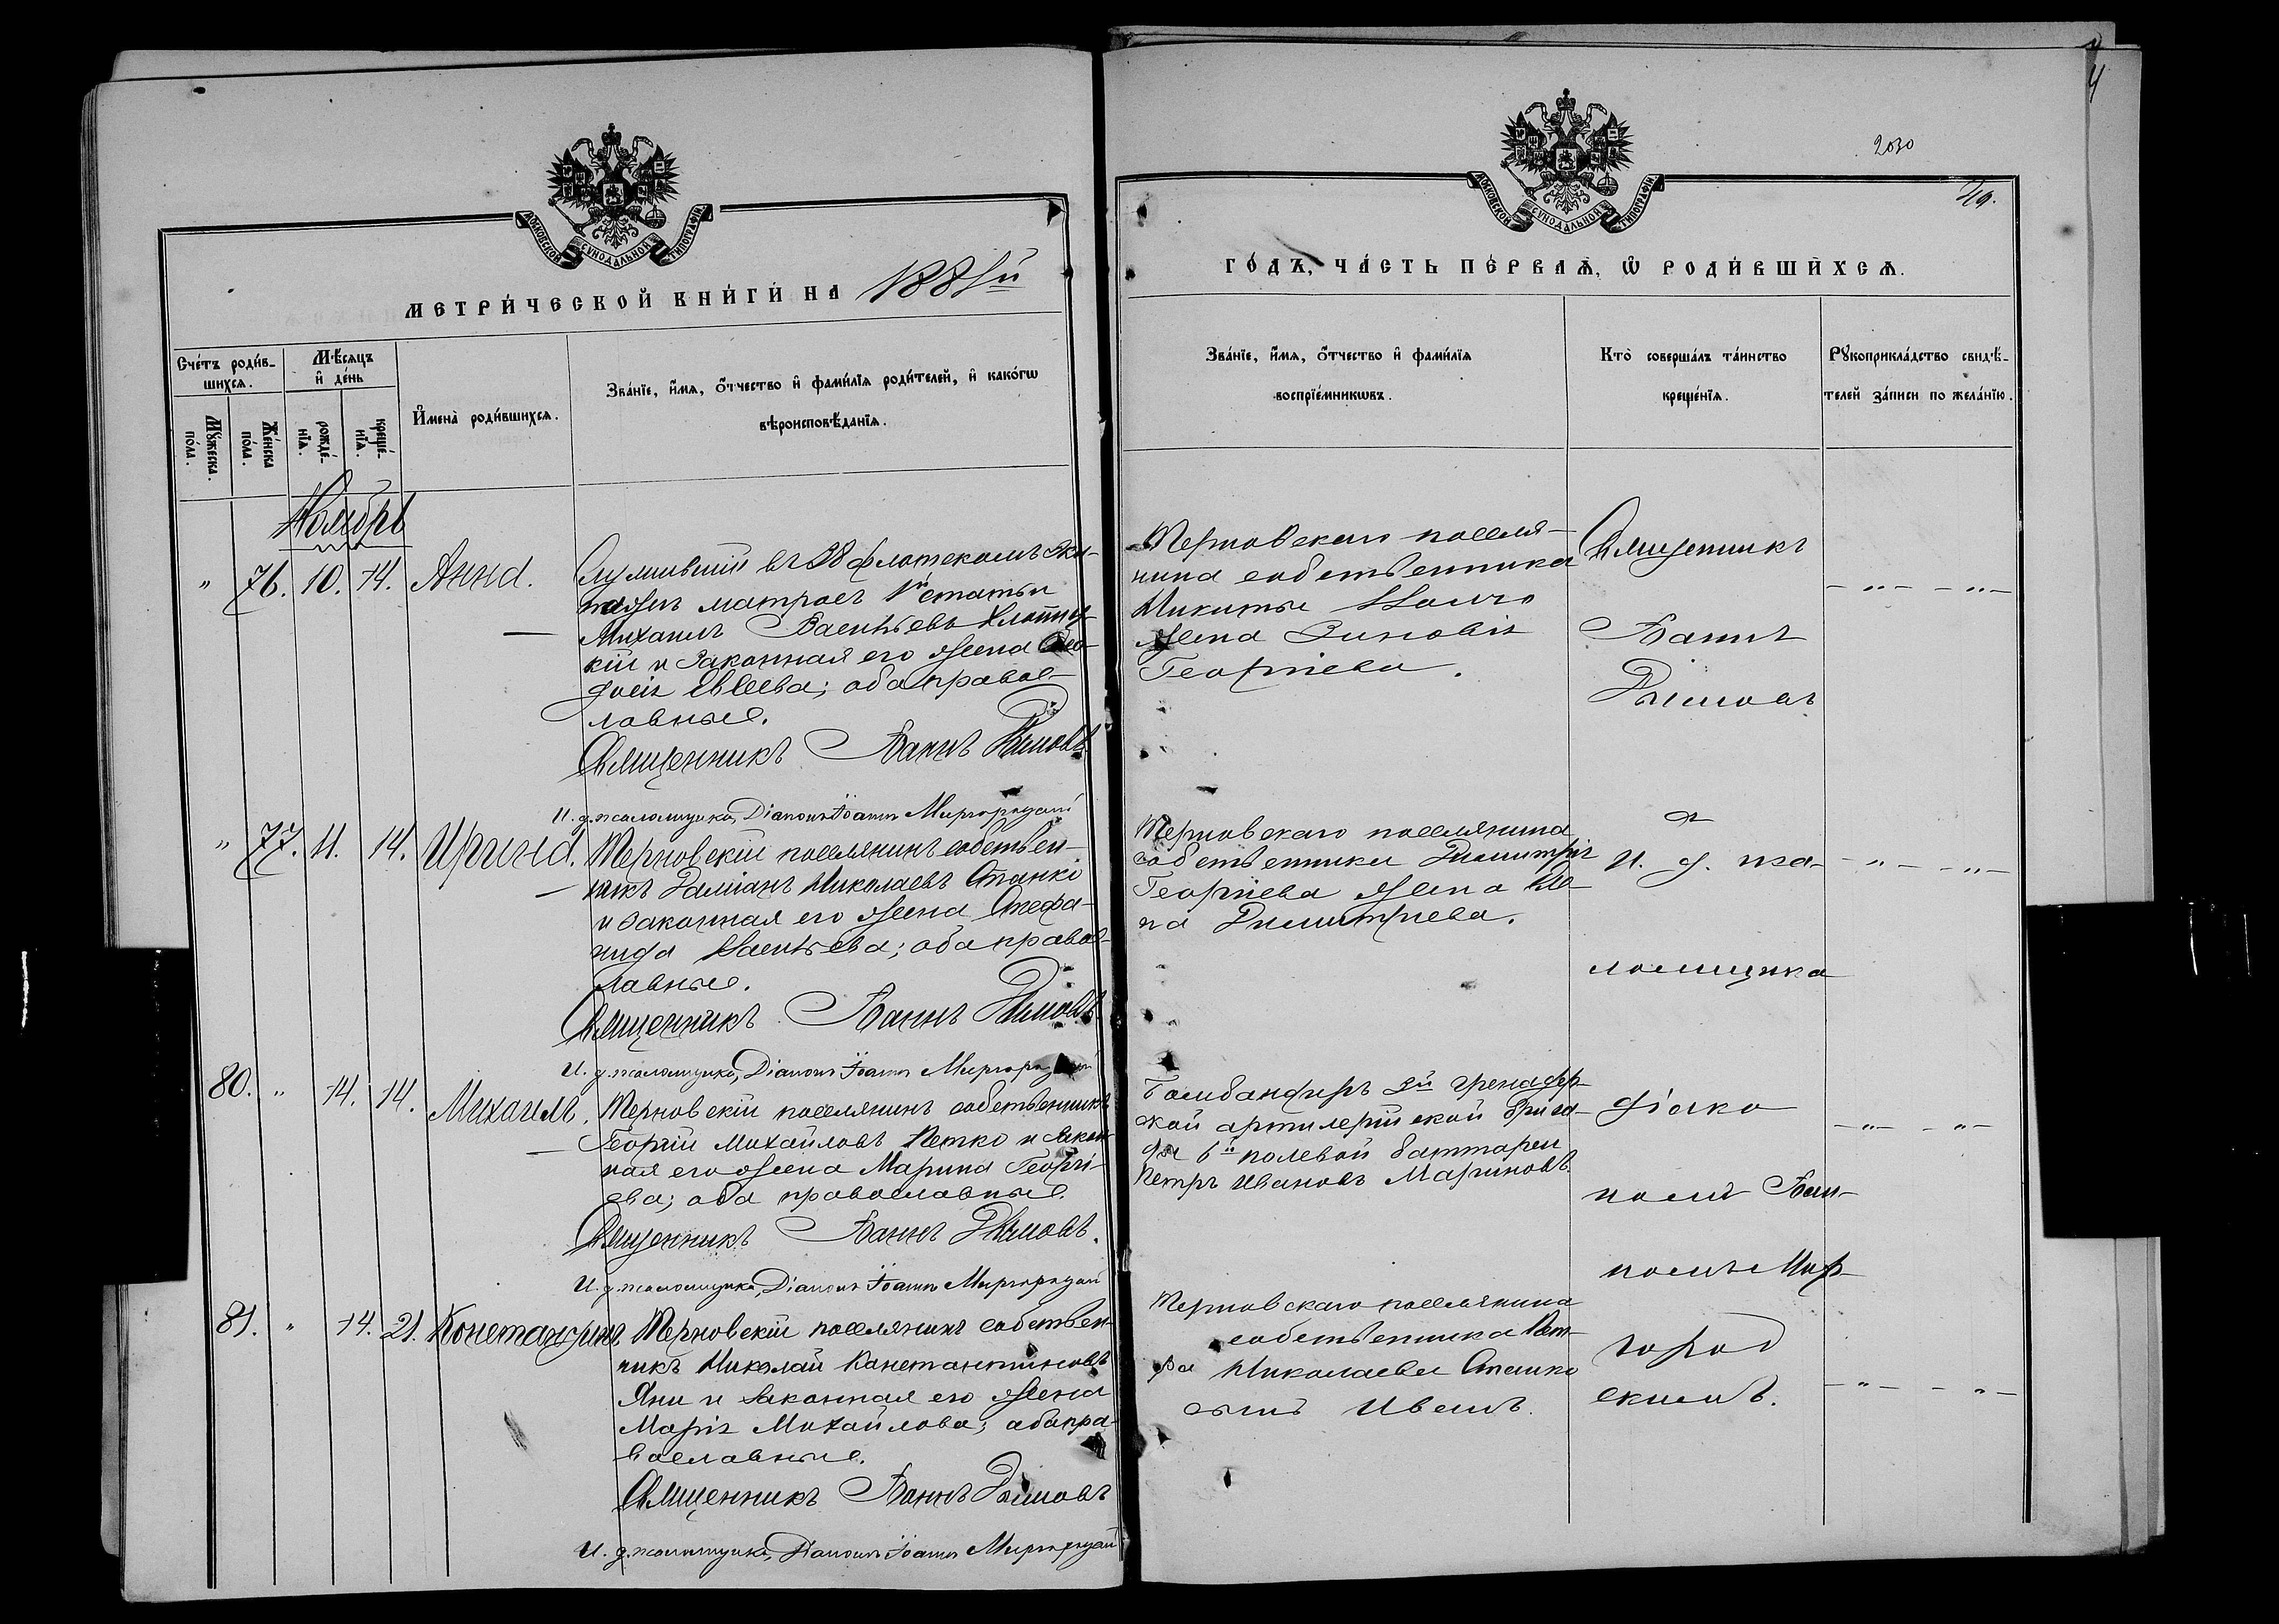 МОСКОВСКОЙ СѴНОДАЛЬНОЙ ТИПОГРАФІИ.
МЕТРИ́ЧЕСКОЙ КНИ́ГИ НА
Сче́тъ роди́в-
шихсѧ.
Мѣ́сѧцъ
и҆ де́нь
Мꙋ́жеска
по́ла.
Же́нска
по́ла.
рожде́-
нїѧ.
креще́-
нїѧ.
И҆мена̀ роди́вшихсѧ.
Зва́нїе, и҆́мѧ, ѻ҆́тчество и҆ фами́лїѧ роди́телей, и҆ како́гѡ
вѣроисповѣ́данїѧ.
Ноябрь
" 76. 10. 14. Анна.
Служившій въ 28 флотскомъ эки-
пажѣ матросъ 1й статьи
Михаилъ Васильевъ
кій и законная его жена Ѳео-
досія Евсеева; оба правос-
лавные.
Священникъ Іоаннъ Дымовъ.
И. д. псаломщика, Діаконъ Іоаннъ Миргородскій
" 77. 11. 14. Ирина.
Терновскій поселянинъ собствен-
никъ Даміанъ Николаевъ Станко
и законная его жена Стефа-
нида Васильева; оба правос-
лавные.
Священникъ Іоаннъ Дымовъ.
И. д. псаломщика, Діаконъ Іоаннъ Миргородскій
80. " 14. 14. Михаилъ.
Терновскій поселянинъ собственникъ
Георгій Михайловъ Петко и закон-
ная его жена Марина Георгі-
ева; оба православные.
Священникъ Іоаннъ Дымовъ.
И. д. псаломщика, Діаконъ Іоаннъ Миргородскій
81. " 14. 21. Константинъ.
Терновскій поселянинъ собствен-
никъ Николай Константиновъ
Яни и законная его жена
Марія Михайлова; оба пра-
вославные.
Священникъ Іоаннъ Дымовъ
И. д. псаломщика, Діаконъ Іоаннъ Миргородскій
2030
МОСКОВСКОЙ СѴНОДАЛЬНОЙ ТИПОГРАФІИ.
ГО́ДЪ, ЧА́СТЬ ПЕ́РВАѦ, Ѡ҆ РОДИ́ВШИХСѦ.
Зва́нїе, и҆́мѧ, ѻ҆́тчество и҆ фами́лїѧ
воспрїе́мникѡвъ.
Кто̀ соверша́лъ та́инство
креще́нїѧ.
Рꙋкоприкла́дство свидѣ́-
телей за́писи по жела́нїю.
Терновскаго поселя-
нина собственника
Никиты
жена Зиновія
Георгіева.
Священникъ
Іоаннъ
Дымовъ
- " - - " -
Терновскаго поселянина
собственника Димитрія
Георгіева жена Еле-
на Димитріева.
и. д. пса-
ломщика
- " - - " -
Бомбандиръ 3й гренадер-
ской артилерійской брига-
ды 6й полевой баттареи
Петръ Ивановъ Мариновъ.
діако
номъ Іоан-
номъ Мир-
- " - - " -
Терновскаго поселянина
собственника Пет-
ра Николаева Станко
сынъ Иванъ.
город
скимъ.
- " - - " -